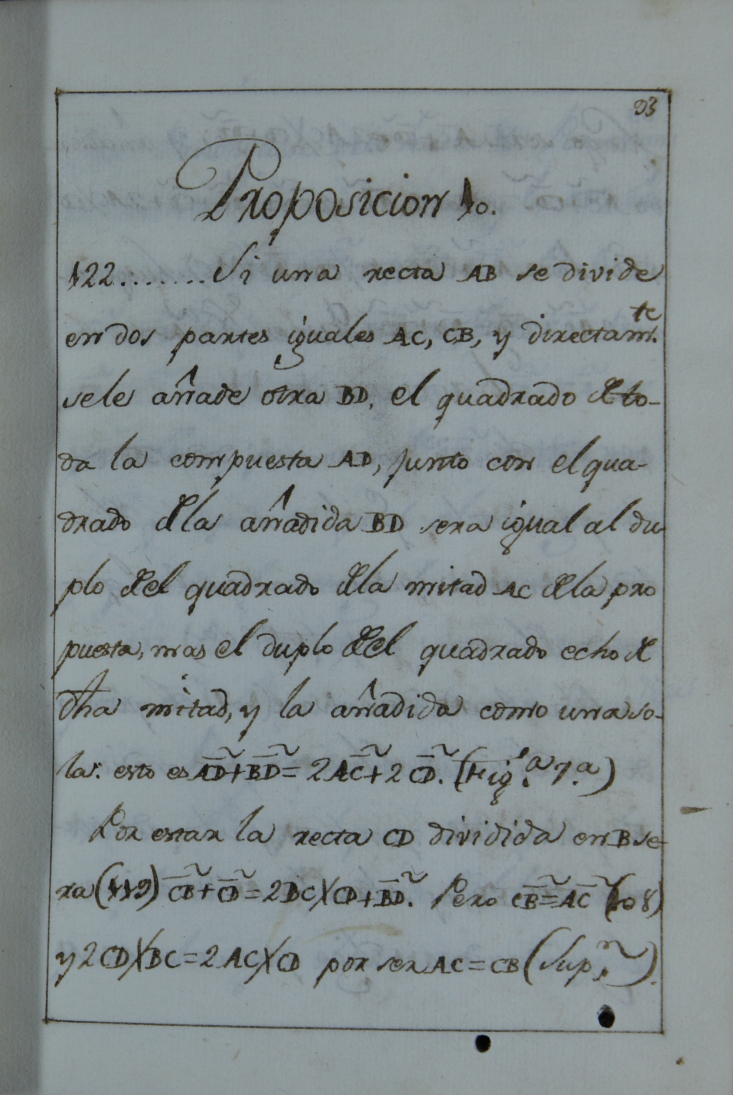 93
Proposicion 10.
122.......Si una recta AB se divide
en dos partes iguales AC, CB, y directam.te
sele añade otra BD, el quadrado de to-
da la compuesta AD, junto con el qua-
drado de la añadida BD sera igual al du
plo del quadrado de la mitad AC de la pro
puesta, mas el duplo del quadrado echo de
dha mitad, y la añadida como una so-
la: esto es A̅D̅²+B̅D̅²=2A̅C̅²+2C̅D̅². (Fig.ª 7.ª)
Por estar la recta CD dividida en B se-
ra (119) C̅B̅²+C̅D̅²=2BC×CD+B̅D̅². Pero C̅B̅²=A̅C̅² (108)
y 2CD×BC=2AC×CD por ser AC=CB (Sup.n).